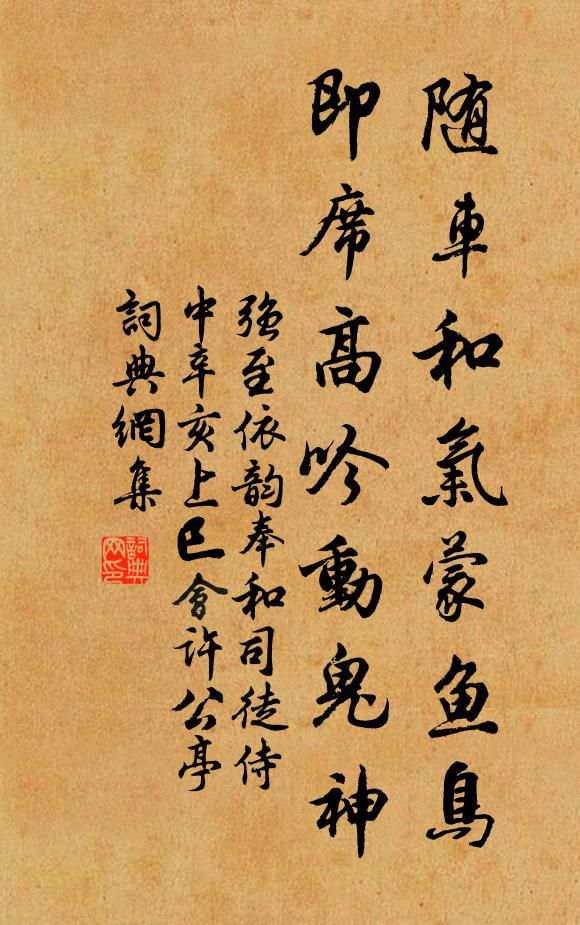 随車和氣蒙鱼鳥
即席髙吟動鬼神
强至依韵奉和司徒侍
中辛亥上巳會许公亭
詞典網集
詞典网印